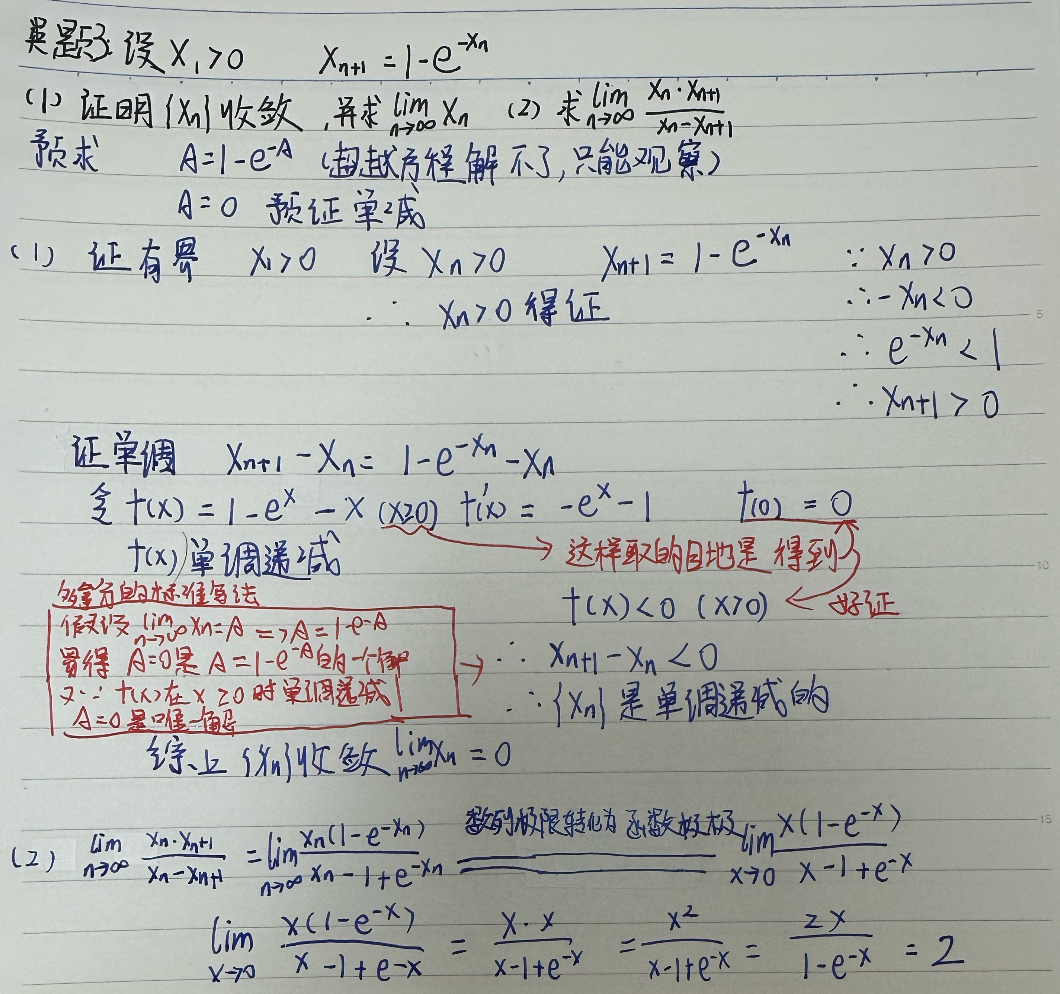 类题3: 设 X₁>0  Xₙ₊₁ = 1-e^{-Xₙ}
(1) 证明{Xₙ}收敛,并求 lim_{n→∞} Xₙ (2) 求 lim_{n→∞} \frac{Xₙ·Xₙ₊₁}{Xₙ-Xₙ₊₁}
预求 A=1-e^{-A} (超越方程解不了,只能观察)
A=0 预证单减
(1) 证有界 X₁>0 设 Xₙ>0 Xₙ₊₁ = 1-e^{-Xₙ} ∵ Xₙ>0
∴ Xₙ>0 得证 ∴ -Xₙ<0
∴ e^{-Xₙ}<1
∴ Xₙ₊₁>0
证单调 Xₙ₊₁-Xₙ = 1-e^{-Xₙ}-Xₙ
令 f(x) = 1-e^x-x (x≥0) f'(x) = -e^x-1 f(0) = 0
f(x)单调递减 → 这样取的目地是 得到
f(x)<0 (x>0) ← 好证
拿分的标准写法
假设 lim_{n→∞} Xₙ=A => A=1-e^{-A}
易得 A=0是 A=1-e^{-A}的一个解
又∵ f(x)在 x≥0 时单调递减
A=0 是唯一解
→ ∴ Xₙ₊₁-Xₙ<0
∴ {Xₙ}是单调递减的
综上 {Xₙ}收敛 lim_{n→∞} Xₙ = 0
(2) lim_{n→∞} \frac{Xₙ·Xₙ₊₁}{Xₙ-Xₙ₊₁} = lim_{n→∞} \frac{Xₙ(1-e^{-Xₙ})}{Xₙ-1+e^{-Xₙ}} 数列极限转化为函数极限 lim_{x→0} \frac{x(1-e^{-x})}{x-1+e^{-x}}
lim_{x→0} \frac{x(1-e^{-x})}{x-1+e^{-x}} = \frac{x·x}{x-1+e^{-x}} = \frac{x²}{x-1+e^{-x}} = \frac{2x}{1-e^{-x}} = 2
5
10
15